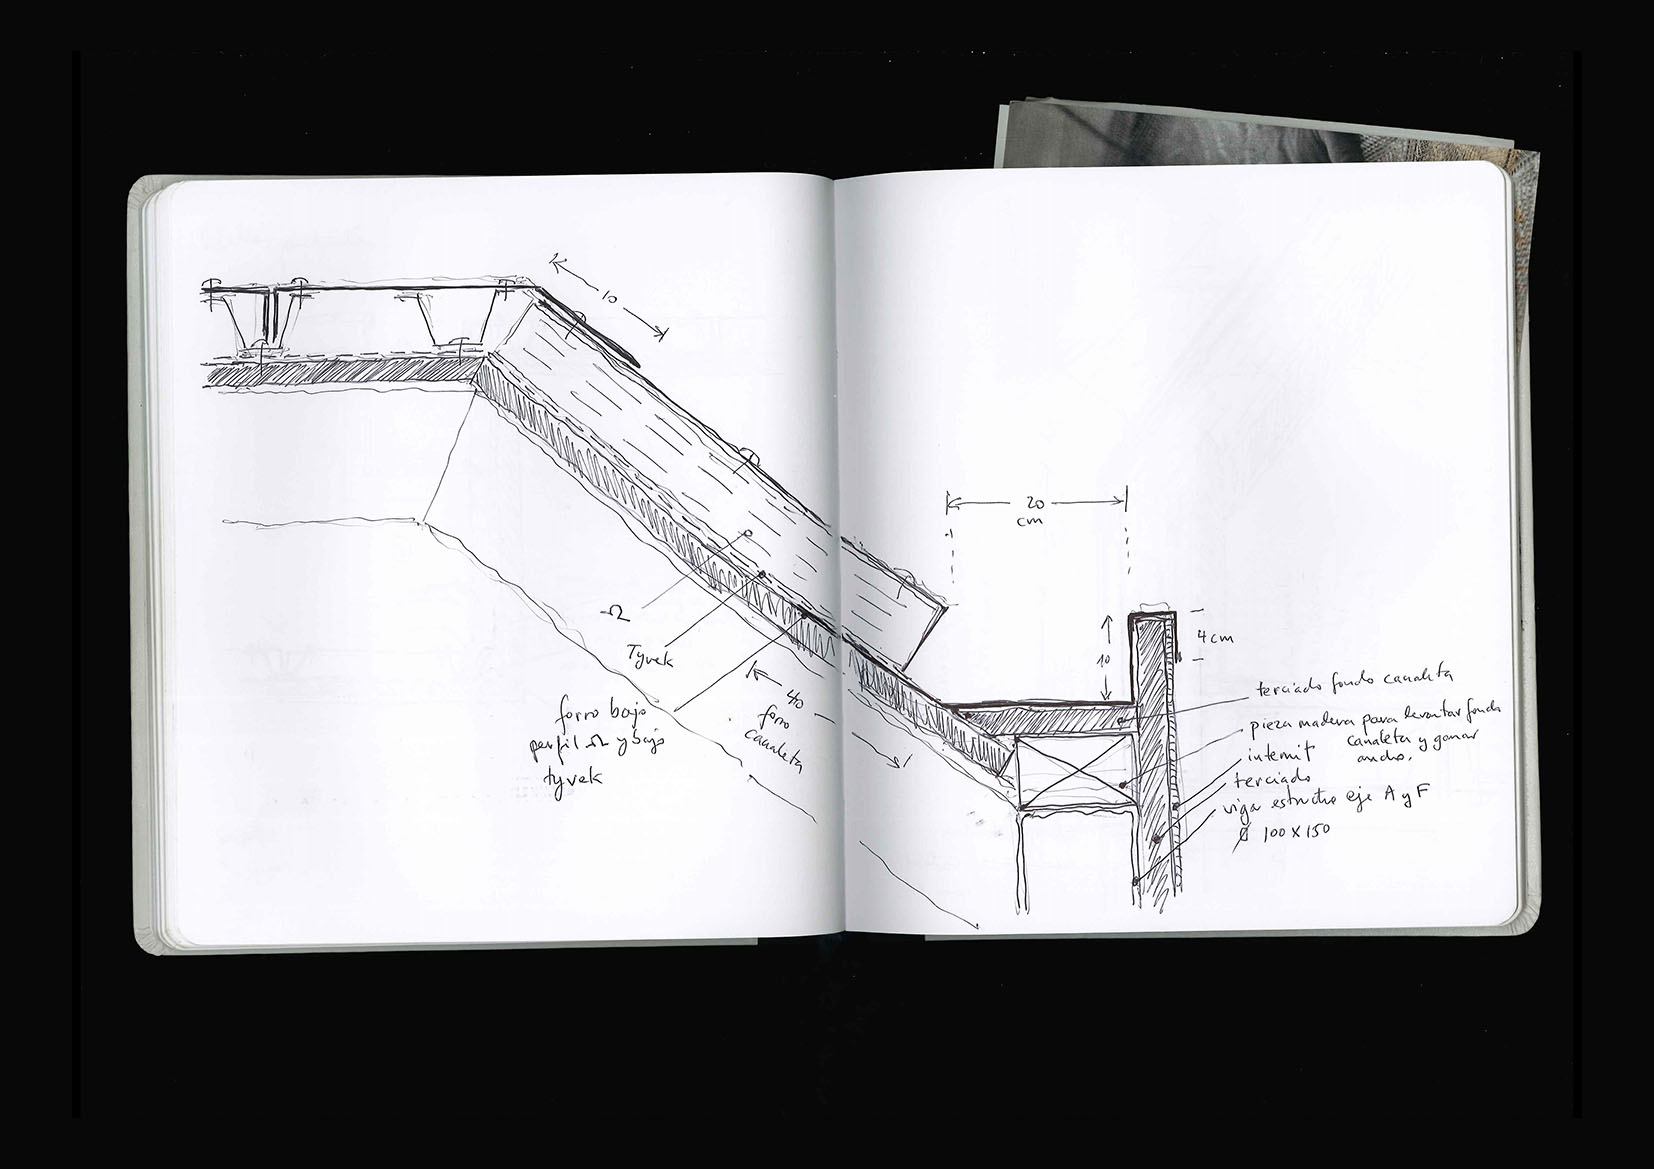 10
Ω
Tyvek
forro bajo
perfil Ω y bajo
tyvek
40
forro
canaleta
20
cm
10
4 cm
terciado fondo canaleta
pieza madera para levantar fondo
canaleta y ganar
ancho.
internit
terciado
viga estructura eje A y F
100 X 150